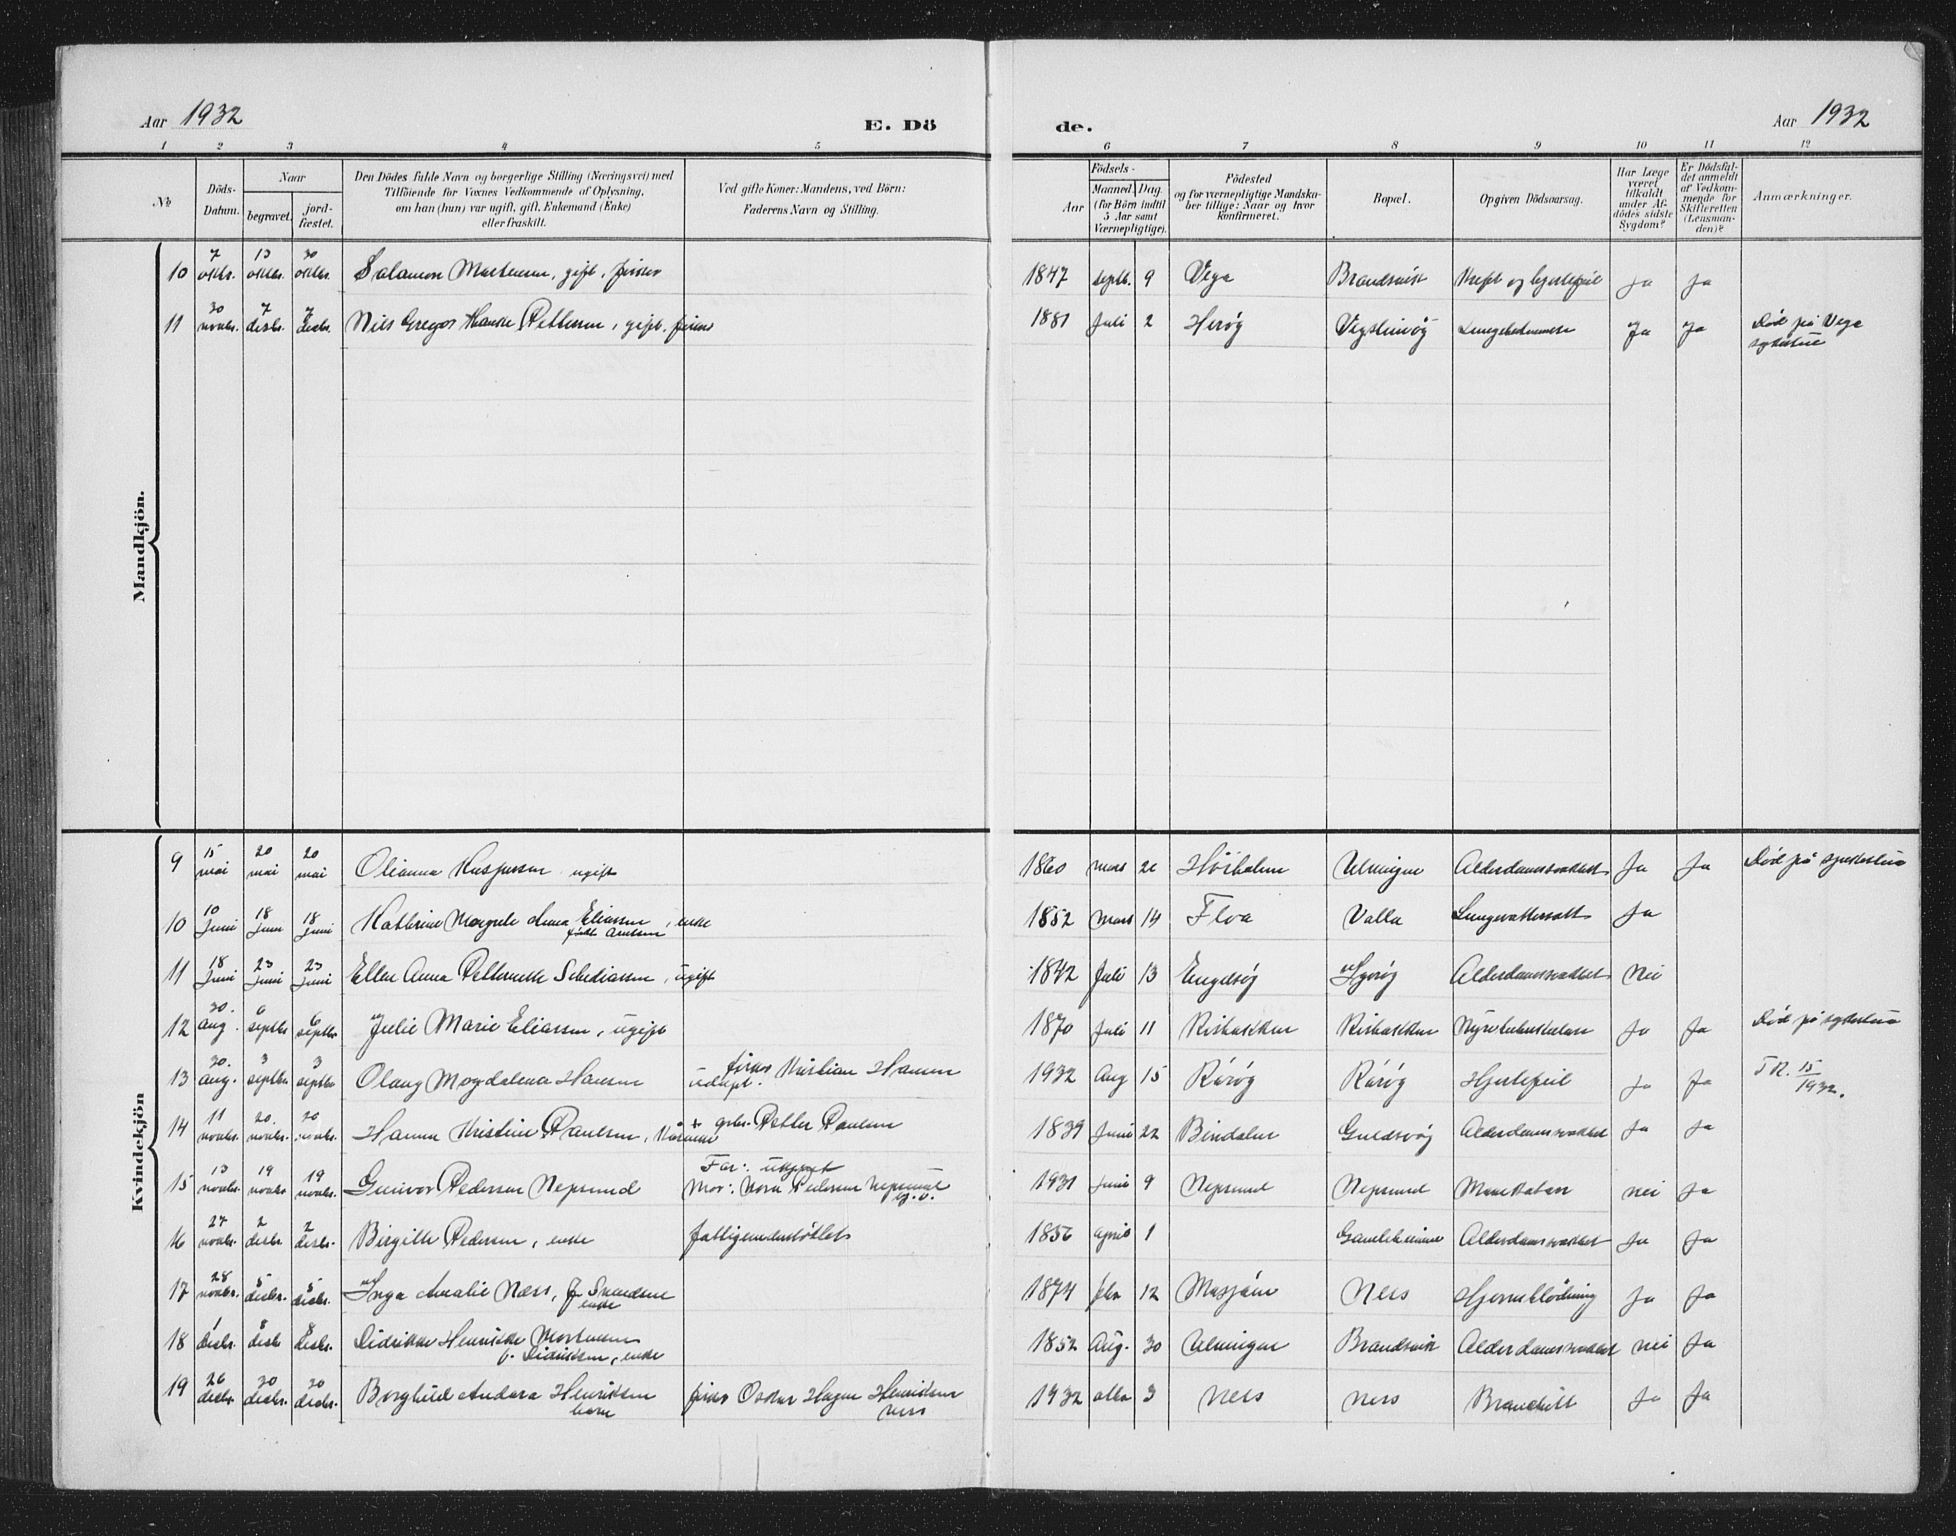 Aar 1932
E. Dö
de.
Aar 1932
1 2 3 4 5 6 7 8 9 10 11 12
№
Döds-
Datum.
Naar
begravet.
jord-
fæstet.
Den Dödes fulde Navn og borgerlige Stilling (Næringsvei) med
Tilföiende for Voxnes Vedkommende af Oplysning,
om han (hun) var ugift, gift, Enkemand (Enke)
eller fraskilt.
Ved gifte Koner: Mandens, ved Börn:
Faderens Navn og Stilling.
Födsels-
Aar
Maaned. Dag.
(for Börn indtil
5 Aar samt
Værnepligtige).
Födested
og for værnepligtige Mandska-
ber tillige: Naar og hvor
konfirmeret.
Bopæl.
Opgiven Dödsaarsag.
Har Læge
været
tilkaldt
under Af-
dödes sidste
Sygdom?
Er Dödsfal-
det anmeldt
af Vedkom-
mende for
Skifteretten
(Lensman-
den)?
Anmærkninger.
Mandkjön.
10 7 oktbr. 13 oktbr. 30 oktbr. Salamon Mortensen, gift, fisker 1847 septb. 9 Vega Brandsvik Kreft og hjertefeil Ja Ja
11 30 novbr. 7 desbr. 7 desbr. Nils Gregos Pettersen, gift, fisker 1881 Juli 2 Herøy Vegsteinöy Ja Ja Död på Vega
sykestue
Kvindekjön
9 15 mai 20 mai 20 mai Olianna Kaspersen ugift 1860 mars Höiholmen Alderdomssvakhet Ja Ja Död på sykestua
10 10 Juni 18 Juni 18 Juni Kathrine Margrete Anna Eliassen, enke
födt Arntsen 1852 Mars 14 Floa Valla Ja
11 18 Juni 23 Juni 23 Juni Ellen Anna ugift 1842 Juli 13 Alderdomssvakhet Nei
12 30. Aug. 6 septbr 6 septbr Julie Marie Eliassen, ugift 1870 Juli 11 Ja Ja Död på sykestua
13 30. Aug. 3 septbr 3 septbr Olaug Magdalena Hansen fisker Kristian Hansen
udöpt. 1932 Aug 15 Rörøy Rörøy Hjertefeil Ja Ja 15
1932.
14 11 novbr. 20. novbr. 20 novbr. Hanna Kristine Paulsen, Petter Paulsen 1839 Juni 22 Bindalen Guldsvåg Alderdomssvakhet Ja Ja
15 13 novbr. 19 novbr 19 novbr. Gunvor Pedersen Nepsund Far: ukjent
Mor: Nora Pedersen Nepsund 1931 Juni 9 Nepsund Nepsund nei Ja
16 27 novbr. 2 desbr 2 desbr. Birgitte Pedersen, enke fattigunderstöttet 1856 april 1 Gamleheimen Alderdomssvakhet Ja Ja
17 28 novbr. 5 desbr. 5 desbr. Inga Amalie Ness, f. Svendsen
enke 1874 febr 12 Mosjöen Ness Hjerneblödning Ja Ja
18 1 desbr. 8 desbr 8 desbr. Didrikke Henrikke Mortensen
f. Didriksen, enke 1852 Aug. 30 Brandsvik Alderdomssvakhet nei Ja
19 26 desbr. 30 desbr. 30 desbr. Borghild Andora Henriksen
barn fisker Oskar Hagen Henriksen
Ness 1932 oktbr 3 Ness Ness Ja Ja